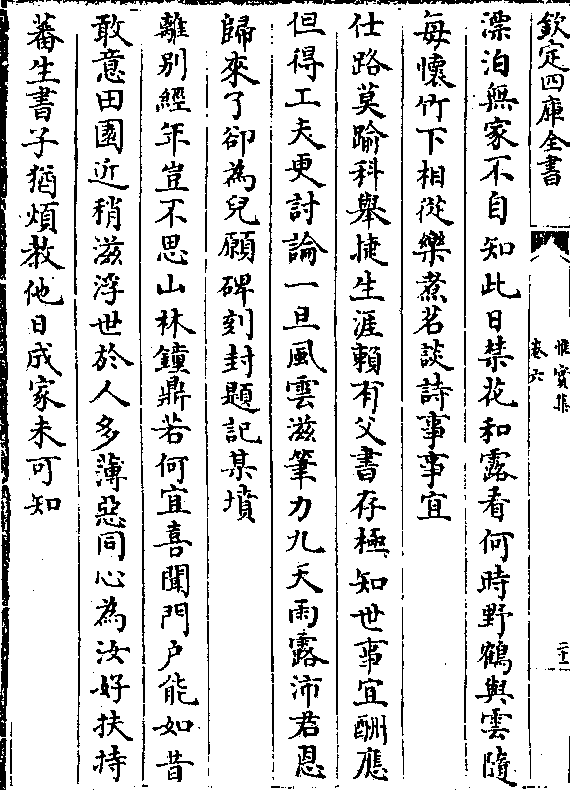 欽定四庫全書
惟實集
卷六
漂泊無家不自知此日禁花和露看何時野鶴與雲隨
每懷竹下相從樂煮茗談詩事事宜
仕路莫踰科舉捷生涯賴有父書存極知世事宜酬應
但得工夫更討論一旦風雲滋筆力九天雨露沛君恩
歸來了卻為兒願碑刻封題記某墳
離別經年豈不思山林鐘鼎若何宜喜聞門户能如昔
敢意田園近稍滋浮世於人多薄惡同心為汝好扶持
蕃生書子猶煩教他日成家未可知